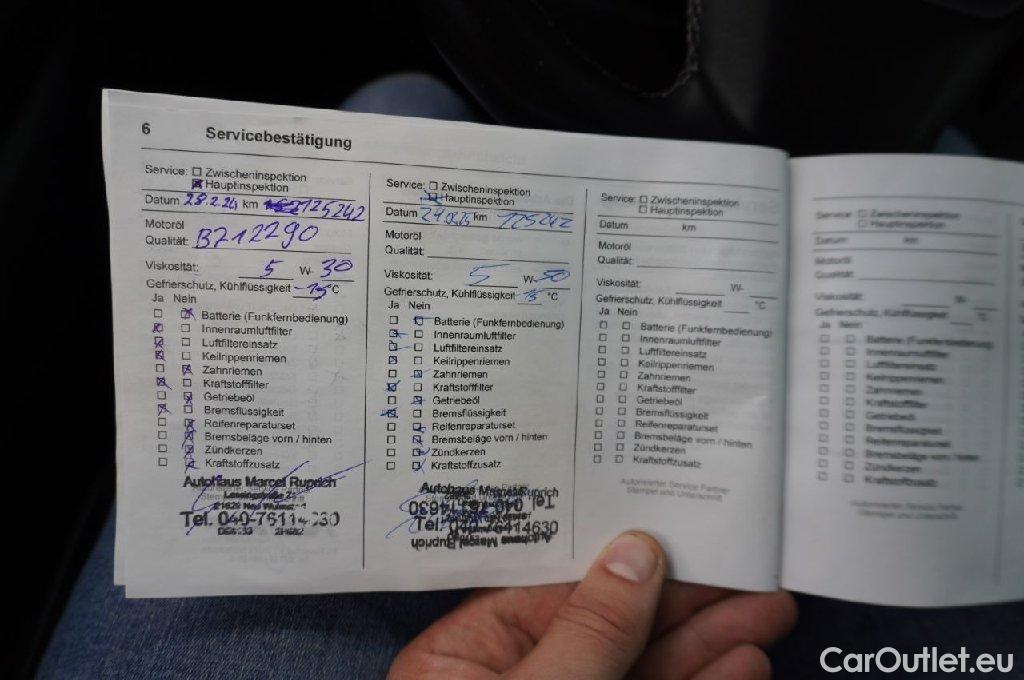 6 Servicebestätigung
Service: Zwischeninspektion
Hauptinspektion
Datum 28.2.24 km 125242
Motoröl
Qualität: B712290
Viskosität: 5 W- 30
Gefrierschutz, Kühlflüssigkeit -15 °C
Ja Nein
Batterie (Funkfernbedienung)
Innenraumluftfilter
Luftfiltereinsatz
Keilrippenriemen
Zahnriemen
Kraftstofffilter
Getriebeöl
Bremsflüssigkeit
Reifenreparaturset
Bremsbeläge vorn / hinten
Zündkerzen
Kraftstoffzusatz
Autohaus Marcel Ruprich
Tel. 040-76114630
Service: Zwischeninspektion
Hauptinspektion
Datum km
Motoröl
Qualität:
Viskosität: 5 W-
Gefrierschutz, Kühlflüssigkeit -15 °C
Ja Nein
Batterie (Funkfernbedienung)
Innenraumluftfilter
Luftfiltereinsatz
Keilrippenriemen
Zahnriemen
Kraftstofffilter
Getriebeöl
Bremsflüssigkeit
Reifenreparaturset
Bremsbeläge vorn / hinten
Zündkerzen
Kraftstoffzusatz
Autohaus Marcel Ruprich
Service: Zwischeninspektion
Hauptinspektion
Datum km
Motoröl
Qualität:
Viskosität: W-
Gefrierschutz, Kühlflüssigkeit °C
Ja Nein
Batterie (Funkfernbedienung)
Innenraumluftfilter
Luftfiltereinsatz
Keilrippenriemen
Zahnriemen
Kraftstofffilter
Getriebeöl
Bremsflüssigkeit
Reifenreparaturset
Bremsbeläge vorn / hinten
Zündkerzen
Kraftstoffzusatz
Autorisierter Service Partner
Stempel und Unterschrift
Service: Zwischeninspektion
Hauptinspektion
Datum km
Motoröl
Qualität:
Viskosität: W-
Gefrierschutz, Kühlflüssigkeit °C
Ja Nein
Batterie (Funkfernbedienung)
Innenraumluftfilter
Luftfiltereinsatz
Keilrippenriemen
Zahnriemen
Kraftstofffilter
Getriebeöl
Bremsflüssigkeit
Reifenreparaturset
Bremsbeläge vorn / hinten
Zündkerzen
Kraftstoffzusatz
Autorisierter Service Partner
Stempel und Unterschrift
CarOutlet.eu